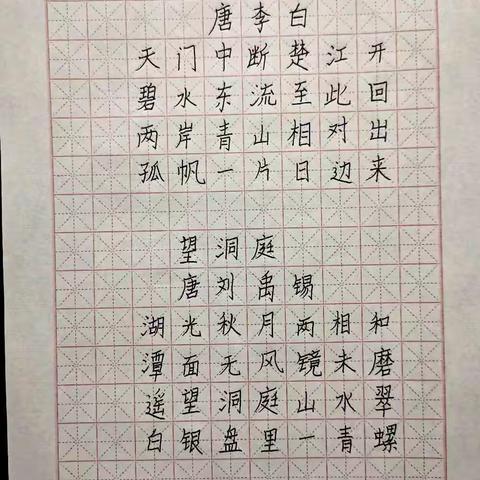 唐李白
天门中断楚江开
碧水东流至此回
两岸青山相对出
孤帆一片日边来
望洞庭
唐刘禹锡
湖光秋月两相和
潭面无风镜未磨
遥望洞庭山水翠
白银盘里一青螺